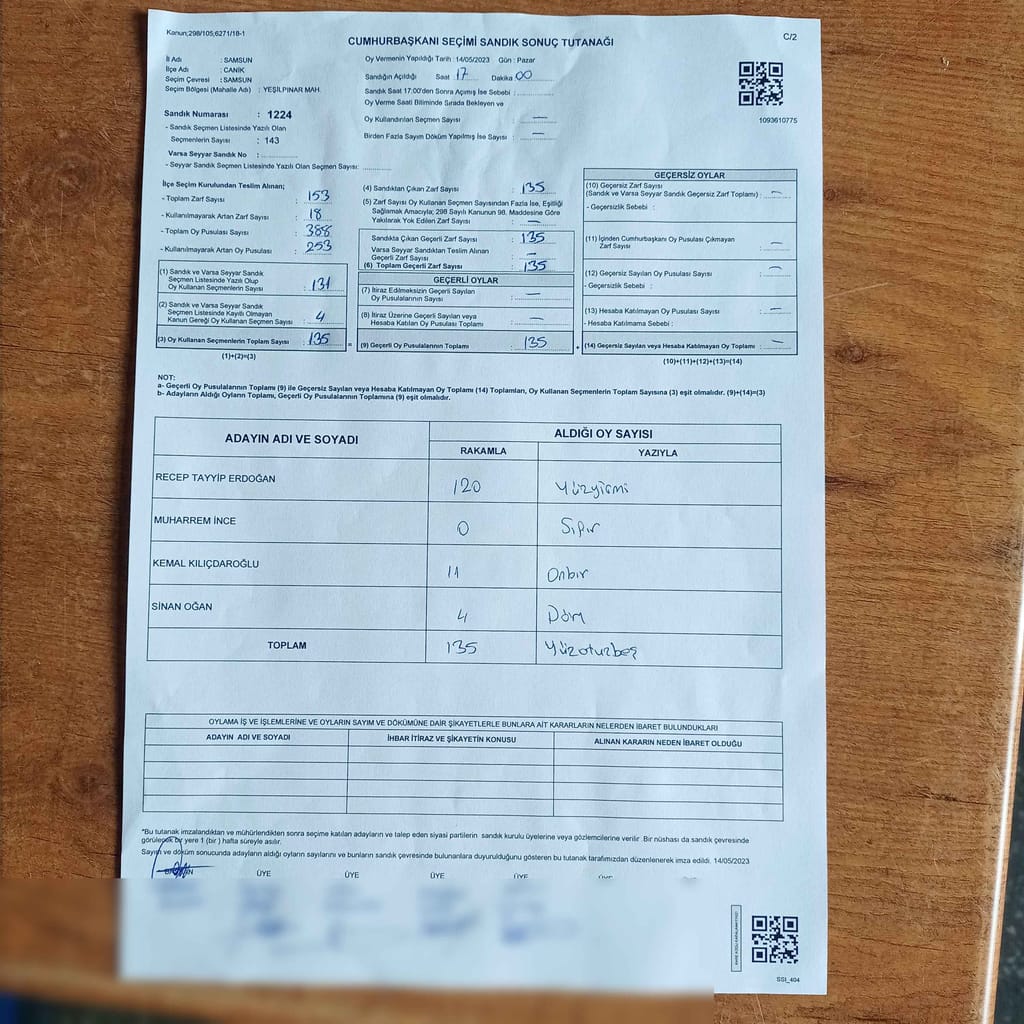 Kanun;298/105,6271/18-1
C/2
CUMHURBAŞKANI SEÇİMİ SANDIK SONUÇ TUTANAĞI
İl Adı : SAMSUN
İlçe Adı : CANİK
Seçim Çevresi : SAMSUN
Seçim Bölgesi (Mahalle Adı) : YEŞİLPINAR MAH.
Oy Vermenin Yapıldığı Tarih : 14/05/2023 Gün : Pazar
Sandığın Açıldığı Saat 17 Dakika 00
Sandık Saat 17.00'den Sonra Açılmış İse Sebebi :
Oy Verme Saati Bitiminde Sırada Bekleyen ve
Oy Kullandırılan Seçmen Sayısı : —
Birden Fazla Sayım Döküm Yapılmış İse Sayısı : —
1093610775
Sandık Numarası : 1224
- Sandık Seçmen Listesinde Yazılı Olan
Seçmenlerin Sayısı : 143
Varsa Seyyar Sandık No :
- Seyyar Sandık Seçmen Listesinde Yazılı Olan Seçmen Sayısı:
İlçe Seçim Kurulundan Teslim Alınan;
- Toplam Zarf Sayısı : 153
- Kullanılmayarak Artan Zarf Sayısı : 18
- Toplam Oy Pusulası Sayısı : 388
- Kullanılmayarak Artan Oy Pusulası : 253
(1) Sandık ve Varsa Seyyar Sandık
Seçmen Listesinde Yazılı Olup
Oy Kullanan Seçmenlerin Sayısı : 131
(2) Sandık ve Varsa Seyyar Sandık
Seçmen Listesinde Kayıtlı Olmayan
Kanun Gereği Oy Kullanan Seçmen Sayısı : 4
(3) Oy Kullanan Seçmenlerin Toplam Sayısı : 135
(1)+(2)=(3)
(4) Sandıktan Çıkan Zarf Sayısı : 135
(5) Zarf Sayısı Oy Kullanan Seçmen Sayısından Fazla İse, Eşitliği
Sağlamak Amacıyla; 298 Sayılı Kanunun 98. Maddesine Göre
Yakılarak Yok Edilen Zarf Sayısı : —
Sandıkta Çıkan Geçerli Zarf Sayısı : 135
Varsa Seyyar Sandıktan Teslim Alınan
Geçerli Zarf Sayısı : —
(6) Toplam Geçerli Zarf Sayısı : 135
GEÇERLİ OYLAR
(7) İtiraz Edilmeksizin Geçerli Sayılan
Oy Pusulalarının Sayısı : —
(8) İtiraz Üzerine Geçerli Sayılan veya
Hesaba Katılan Oy Pusulası Toplamı : —
= (9) Geçerli Oy Pusulalarının Toplamı : 135
GEÇERSİZ OYLAR
(10) Geçersiz Zarf Sayısı
(Sandık ve Varsa Seyyar Sandık Geçersiz Zarf Toplamı) : —
- Geçersizlik Sebebi :
(11) İçinden Cumhurbaşkanı Oy Pusulası Çıkmayan
Zarf Sayısı : —
(12) Geçersiz Sayılan Oy Pusulası Sayısı : —
- Geçersizlik Sebebi :
(13) Hesaba Katılmayan Oy Pusulası Sayısı : —
- Hesaba Katılmama Sebebi :
+ (14) Geçersiz Sayılan veya Hesaba Katılmayan Oy Toplamı : —
(10)+(11)+(12)+(13)=(14)
NOT:
a- Geçerli Oy Pusulalarının Toplamı (9) ile Geçersiz Sayılan veya Hesaba Katılmayan Oy Toplamı (14) Toplamları, Oy Kullanan Seçmenlerin Toplam Sayısına (3) eşit olmalıdır. (9)+(14)=(3)
b- Adayların Aldığı Oyların Toplamı, Geçerli Oy Pusulalarının Toplamına (9) eşit olmalıdır.
ADAYIN ADI VE SOYADI ALDIĞI OY SAYISI
RAKAMLA YAZIYLA
RECEP TAYYİP ERDOĞAN 120 Yüzyirmi
MUHARREM İNCE 0 Sıfır
KEMAL KILIÇDAROĞLU 11 Onbir
SİNAN OĞAN 4 Dört
TOPLAM 135 Yüzotuzbeş
OYLAMA İŞ VE İŞLEMLERİNE VE OYLARIN SAYIM VE DÖKÜMÜNE DAİR ŞİKAYETLERLE BUNLARA AİT KARARLARIN NELERDEN İBARET BULUNDUKLARI
ADAYIN ADI VE SOYADI İHBAR İTİRAZ VE ŞİKAYETİN KONUSU ALINAN KARARIN NEDEN İBARET OLDUĞU
*Bu tutanak imzalandıktan ve mühürlendikten sonra seçime katılan adayların ve talep eden siyasi partilerin sandık kurulu üyelerine veya gözlemcilerine verilir. Bir nüshası da sandık çevresinde
görülecek bir yere 1 (bir) hafta süreyle asılır.
Sayım ve döküm sonucunda adayların aldığı oyların sayılarını ve bunların sandık çevresinde bulunanlara duyurulduğunu gösteren bu tutanak tarafımızdan düzenlenerek imza edildi. 14/05/2023
BAŞKAN ÜYE ÜYE ÜYE ÜYE ÜYE
SSI_404